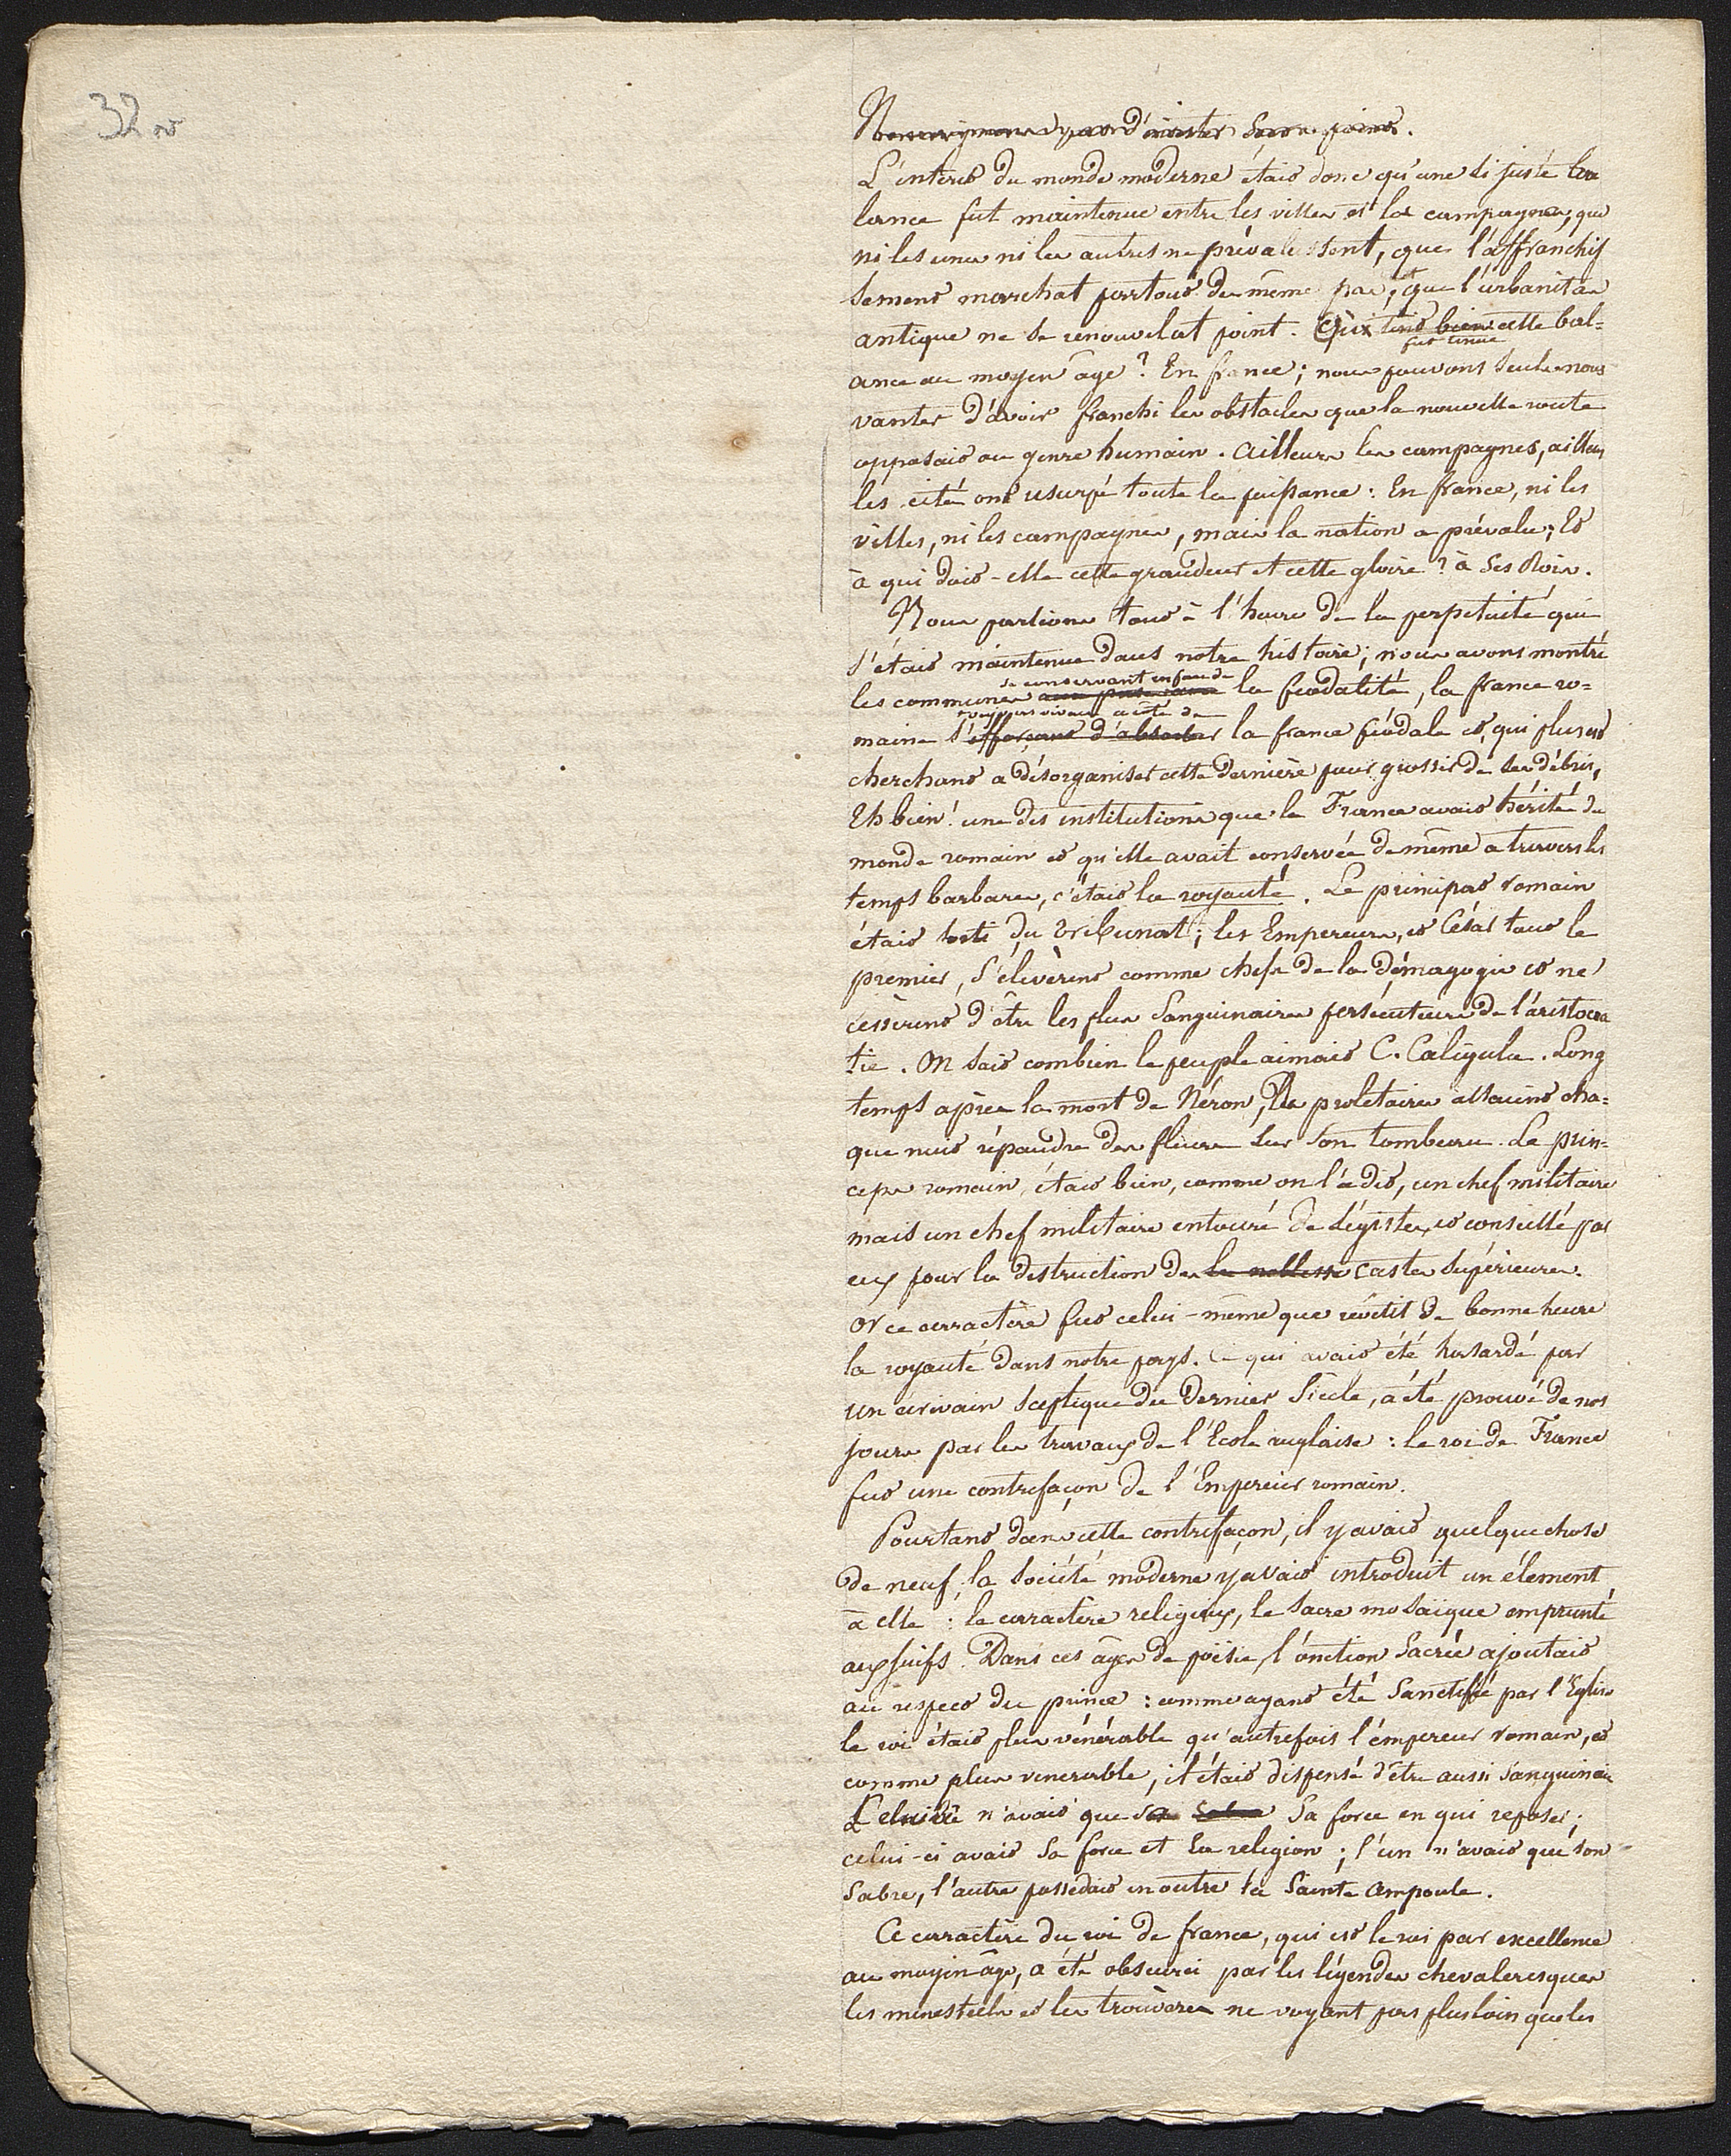 32 v°
d'insister
L'intérêt du monde moderne était donc qu'une si juste ba
lance fut maintenue entre les villes et les campagnes, que
ni les unes ni les autres ne prévalussent, que l'affranchis
sement marchat partout du même pas, et que l'urbanitas
antique ne se renouvelat point. Qui tint bien cette bal=
fut tenue
ance au moyen âge? En france; nous pouvons seuls nous
vanter d'avoir franchi les obstacles que la nouvelle route
opposait au genre humain. Ailleurs les campagnes, ailleurs
les cités ont usurpé toute la puissance: En france, ni les
villes, ni les campagnes, mais la nation a prévalu; Et
à qui doit-elle cette grandeur et cette gloire? à ses Rois.
Nous parlions tout à l'heure de la perpetuité qui
s'était maintenue dans notre histoire; nous avons montré
se conservant en face de
les communes la féodalité, la france ro=
toujours vivant a côté de
maine s'efforçant d'absorber la france féodale et, qui plus est
cherchant a désorganiser cette dernière pour grossir de ses débris,
Eh bien! une des institutions que la France avait hérité du
monde romain et qu'elle avait conservée de même a travers les
temps barbares, c'était la royauté. Le principat romain
était sorti du Tribunat; les Empereurs, et César tout le
premier, s'élevèrent comme chefs de la démagogie et ne
cessèrent d'être les plus sanguinaires persécuteurs de l'aristocra
tie. On sait combien le peuple aimait C. Caligula. Long
temps après la mort de Néron, les proletaires allaient cha=
que nuit répandre des fleurs sur son tombeau. Le prin=
ceps romain était bien, comme on l'a dit, un chef militaire
mais un chef militaire entouré de Légistes, et conseillé par
eux pour la destruction des la noblesse castes supérieures.
Or ce carractère fut celui-même que revêtit de bonne heure
la royauté dans notre pays. Ce qui avait été hasardé par
un écrivain sceptique du dernier siècle, a été prouvé de nos
jours par les travaux de l'Ecole anglaise: le roi de France
fut une contrefaçon de l'Empereur romain.
Pourtant dans cette contrefaçon, il y avait quelque chose
de neuf; la société moderne y avait introduit un élement
à elle: le carractère religieux, le sacre mosaïque emprunté
aux juifs. Dans ces âges de poësie, l'onction sacrée ajoutait
au respect du prince: comme ayant été sanctifié par l'Eglise
le roi était plus vénérable qu'autrefois l'empereur romain, et
comme plus venerable, il était dispensé d'être aussi sanguinaire
Celui-là n'avait que sa force en qui reposer;
celui-ci avait sa force et sa religion; l'un n'avait que son
sabre, l'autre possedait en outre la Sainte Ampoule.
Ce carractère du roi de france, qui est le roi par excellence
au moyen âge, a été obscurci par les légendes chevaleresques
les menestrels et les trouvères ne voyant pas plus loin que les